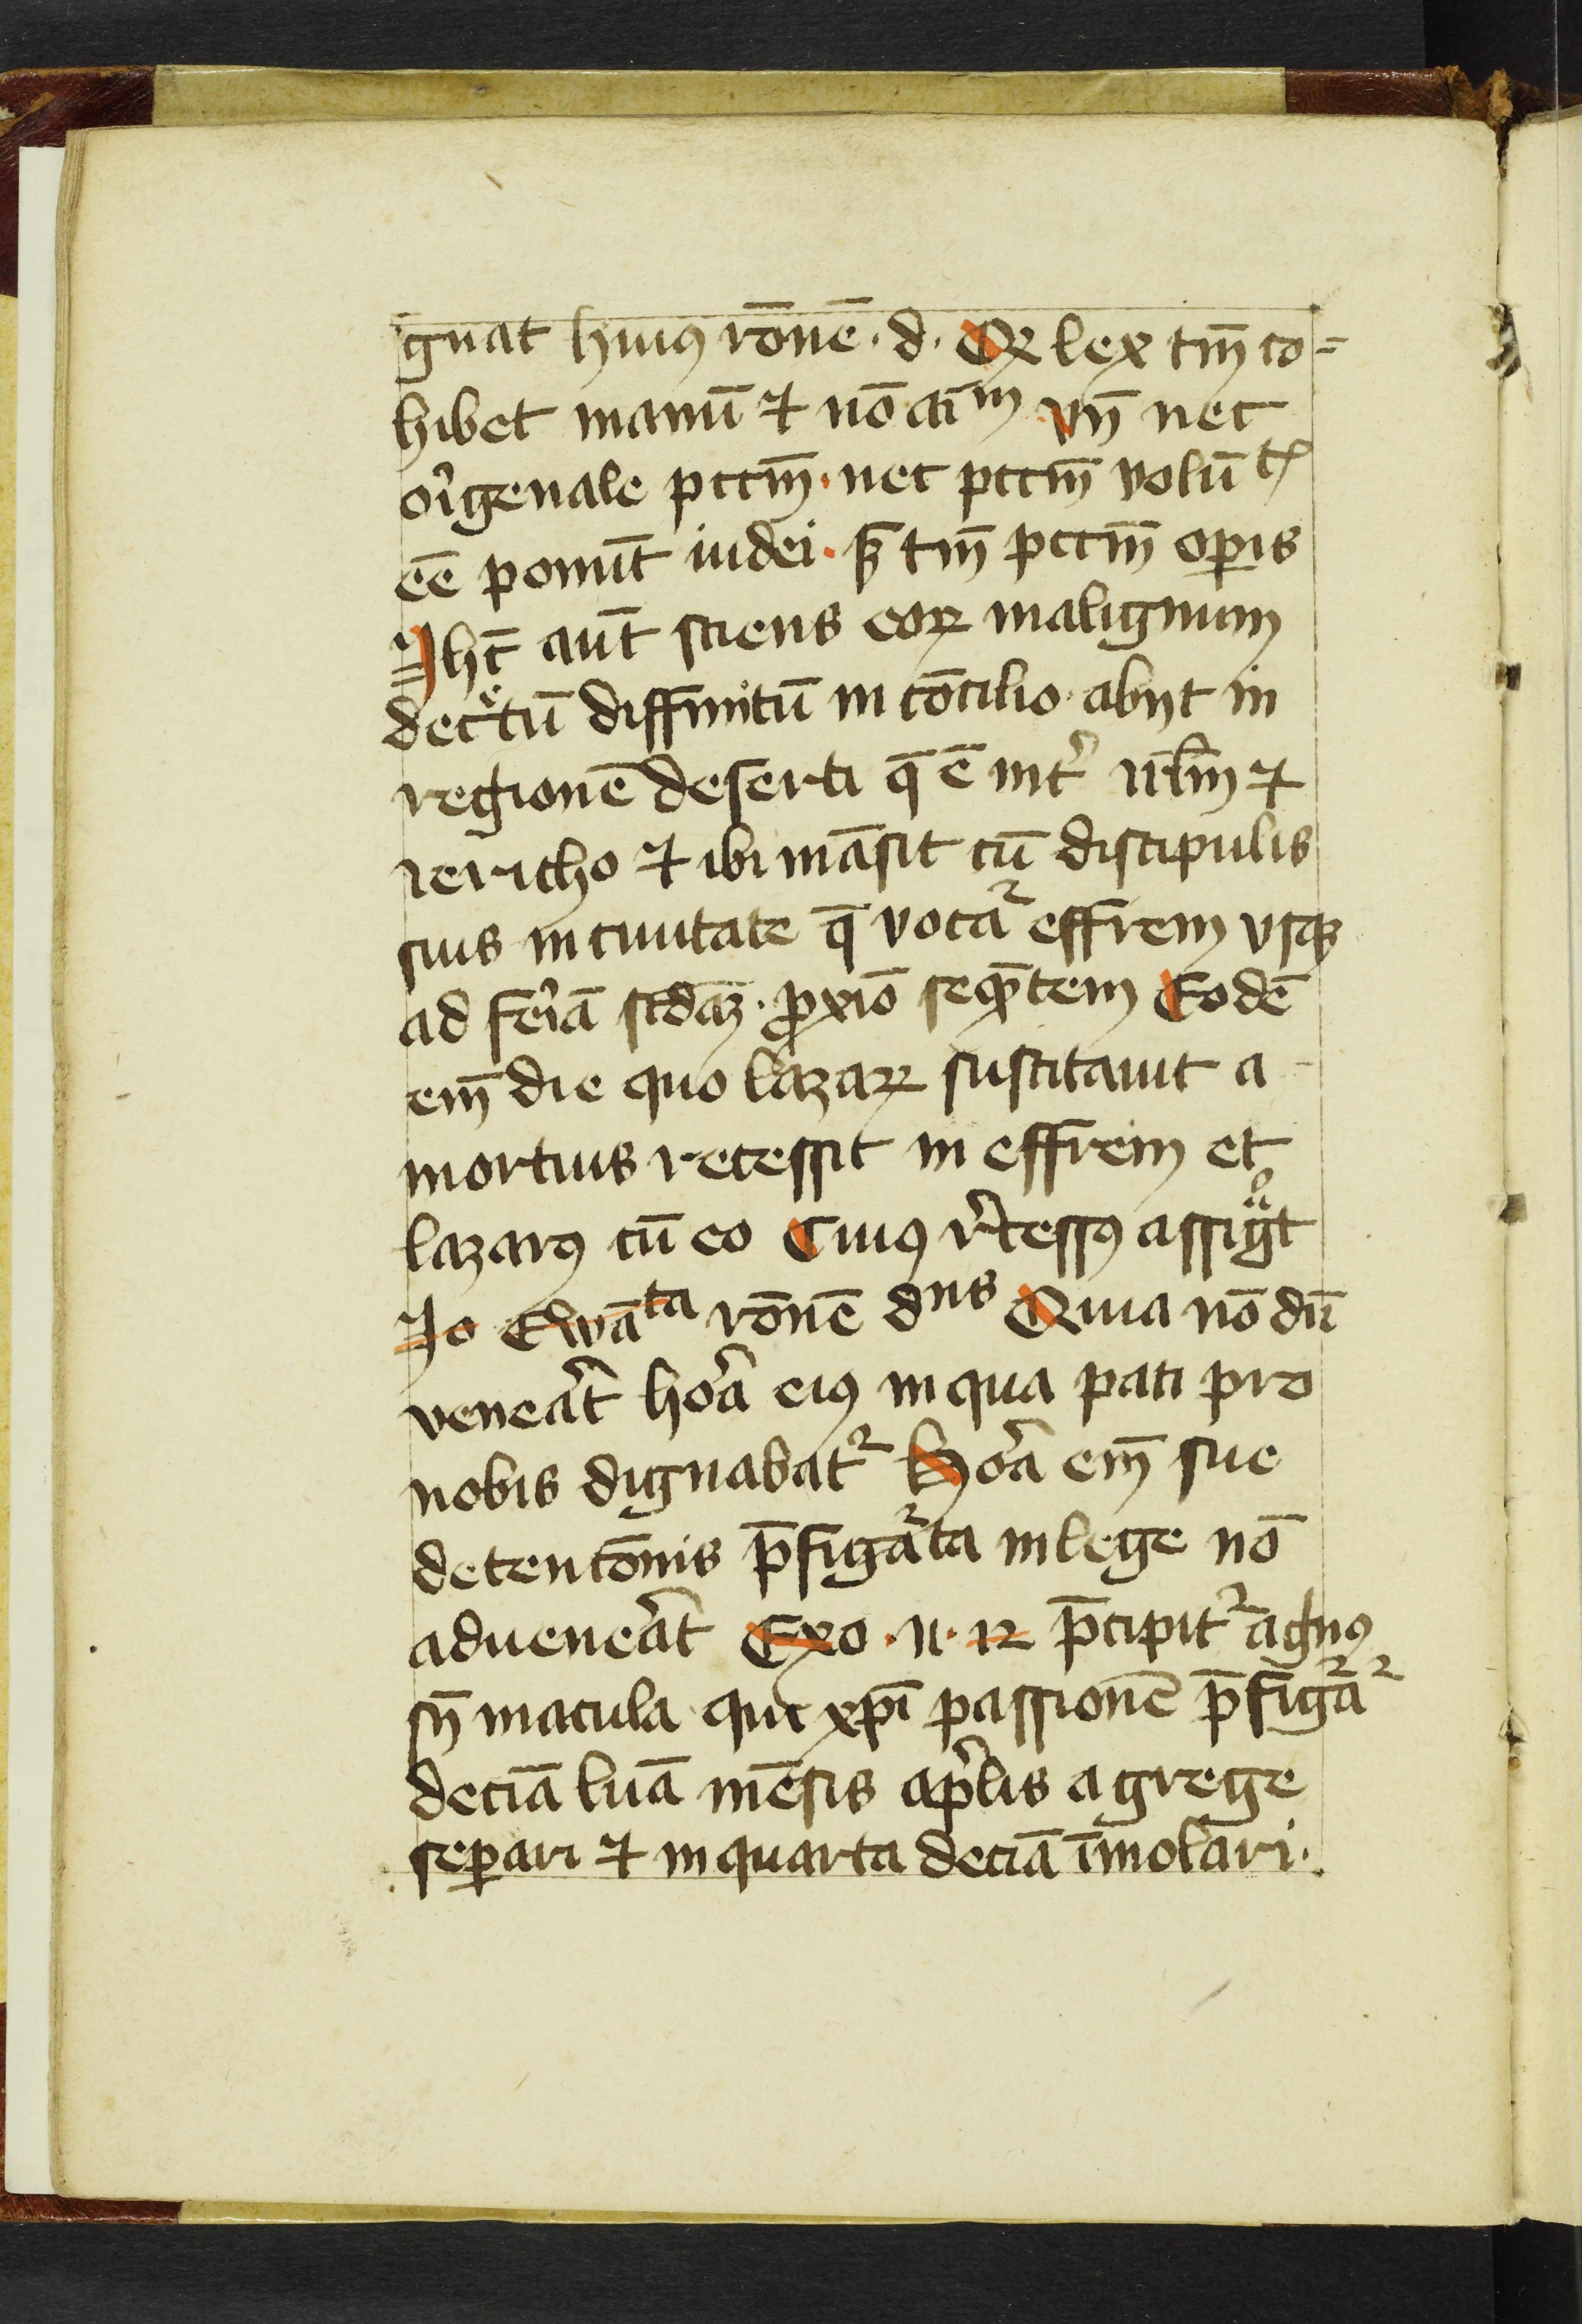 gnat huiꝰ rōnē · d · Qꝛ lex tm̄ co=
hibet manū ⁊ nō aīm vn̄ nec
origenale pccm̄ · nec pccm̄ volūtꝭ
eē ponūt iudei · sꝫ tm̄ pccm̄ oꝑis
Ihc̄ aūt sciens eoꝝ malignum
decͤtū diffinitū in cōcilio abijt in
regionē deserti q̄ ē int̉ irl̄m ⁊
iericho ⁊ ibi māsit cū discipulis
suis in ciuitate q̄ vocāꝛ effrem vsqꝫ
ad feriā scdāꝫ · ꝓxīo seqn̄tem Eodē
em̄ die quo lazaꝝ suscitauit a
mortuis recessit in effrem et
lazarꝰ cū eo Cuiꝰ r̉cessꝰ assigͣt
Jo Ewāta rōnē dns Quia nō dū
veneāt hora eiꝰ in qua pati pro
nobis dignabatꝛ Hora em̄ sue
detentōnis p̄figurata in lege nō
adueneāt Exo · 11 · 12 p̄cipitꝛ agnꝰ
sn̄ macula qui xp̄i passionē p̄figurāꝛ
deciā lunā mēsis aprilis a grege
seꝑari ⁊ in quarta deciā īmolari ·